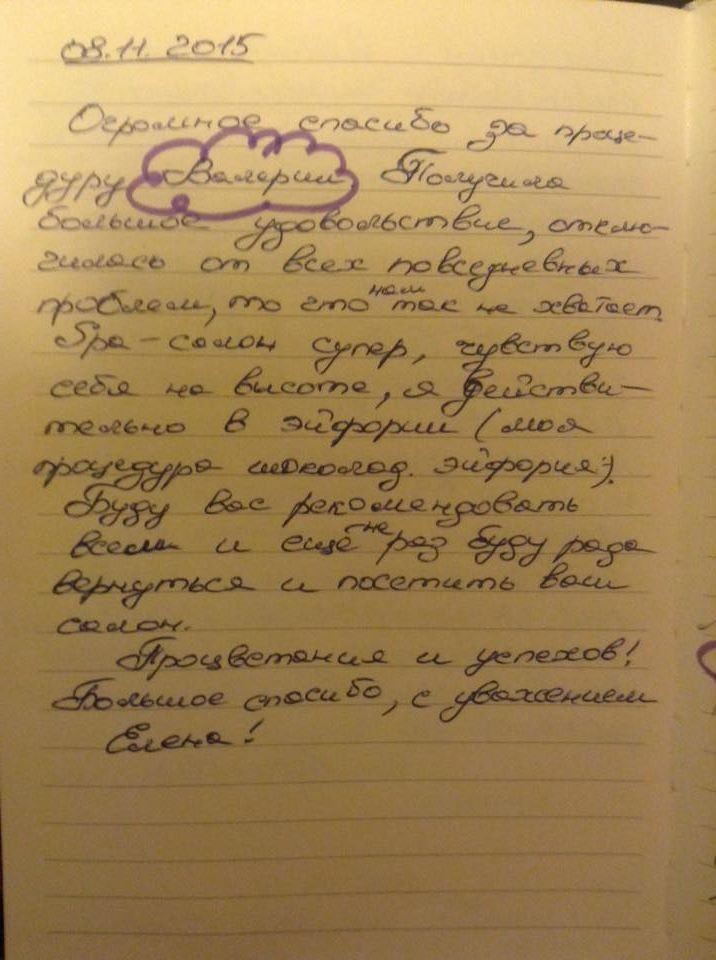 08.11.2015
Огромное спасибо за проце-
дуру Валерии Получила
большое удовольствие, отклю-
чилась от всех повседневных
проблем, то что нам так не хватает.
Spa-салон супер, чувствую
себя на высоте, я действи-
тельно в эйфории (моя
процедура шоколад. эйфория:).
Буду вас рекомендовать
всем и ещё не раз буду рада
вернуться и посетить ваш
салон.
Процветания и успехов!
Большое спасибо, с уважением
Елена!